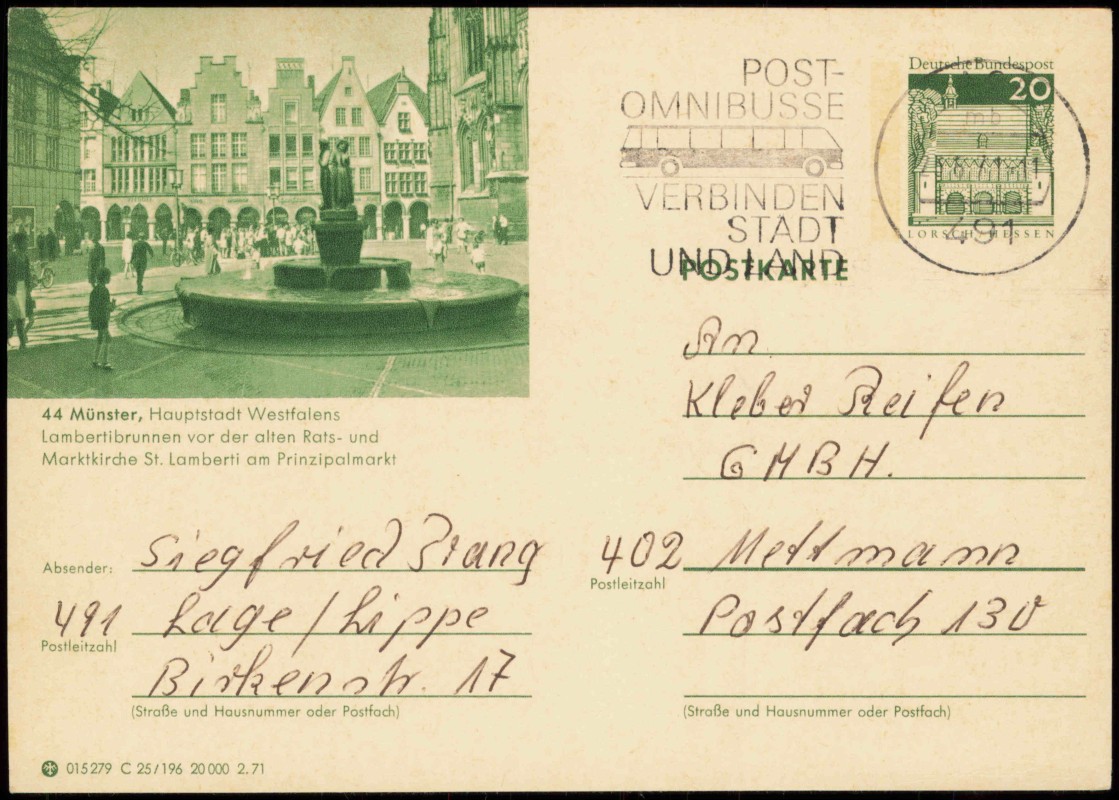 POST-
OMNIBUSSE
VERBINDEN
STADT
UND LAND
Deutsche Bundespost
20
mb
491
LORSCH/HESSEN
POSTKARTE
44 Münster, Hauptstadt Westfalens
Lambertibrunnen vor der alten Rats- und
Marktkirche St. Lamberti am Prinzipalmarkt
An
Kleber Reifen
GMBH.
402 Mettmann
Postleitzahl
Postfach 130
(Straße und Hausnummer oder Postfach)
Absender: Siegfried Prang
491 Lage/Lippe
Postleitzahl
Birkenstr. 17
(Straße und Hausnummer oder Postfach)
015279 C 25/196 20000 2.71